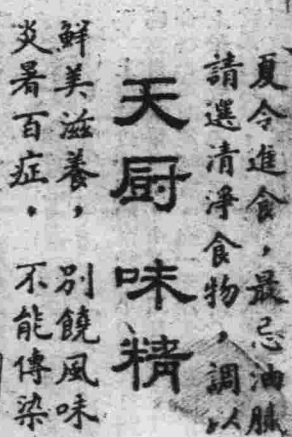 夏令進食,最忌油膩
請選清淨食物,調以
天厨味精
鮮美滋養,別饒風味
炎暑百症,不能傳染